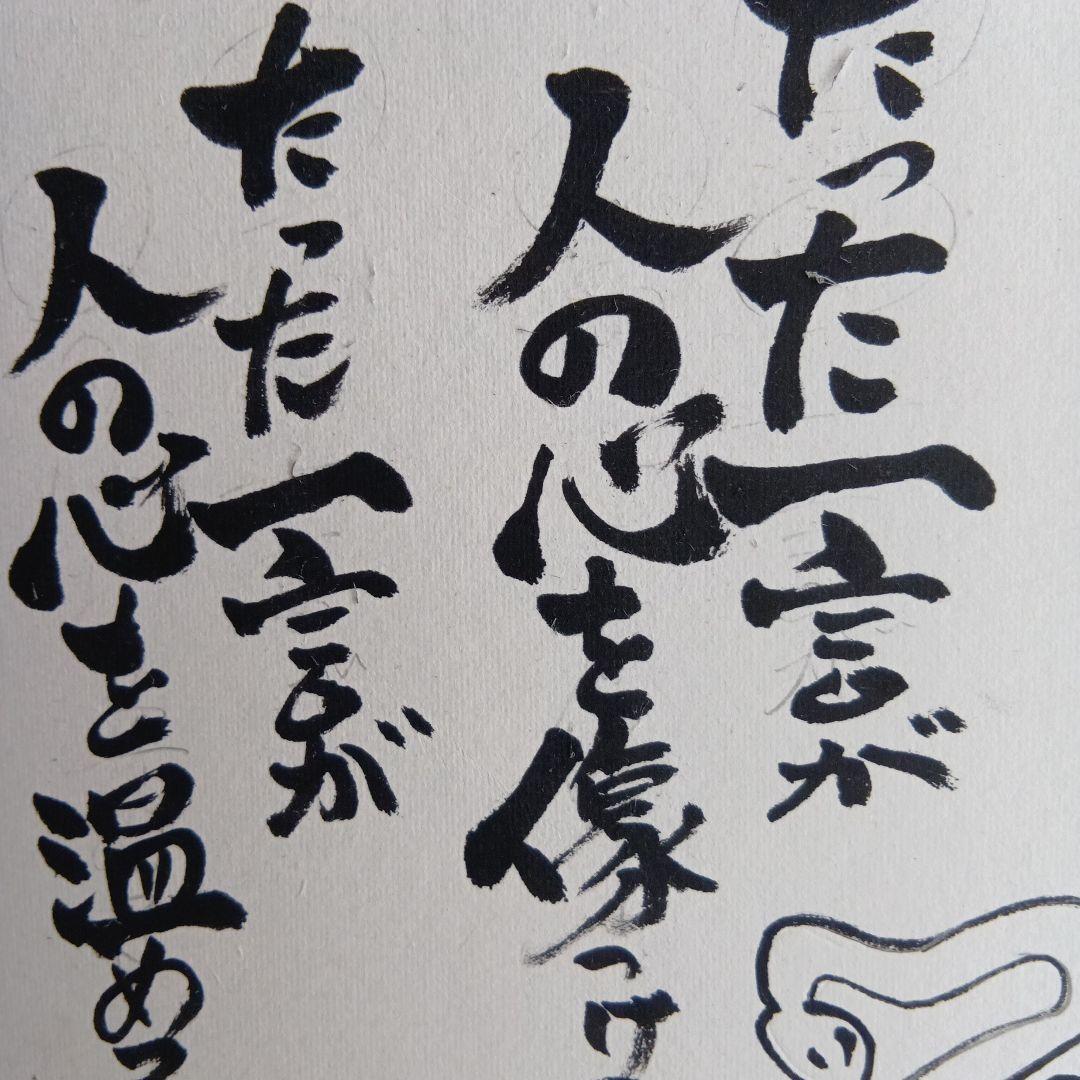 たった一言が
人の心を像つけ
たった一言が
人の心を温め